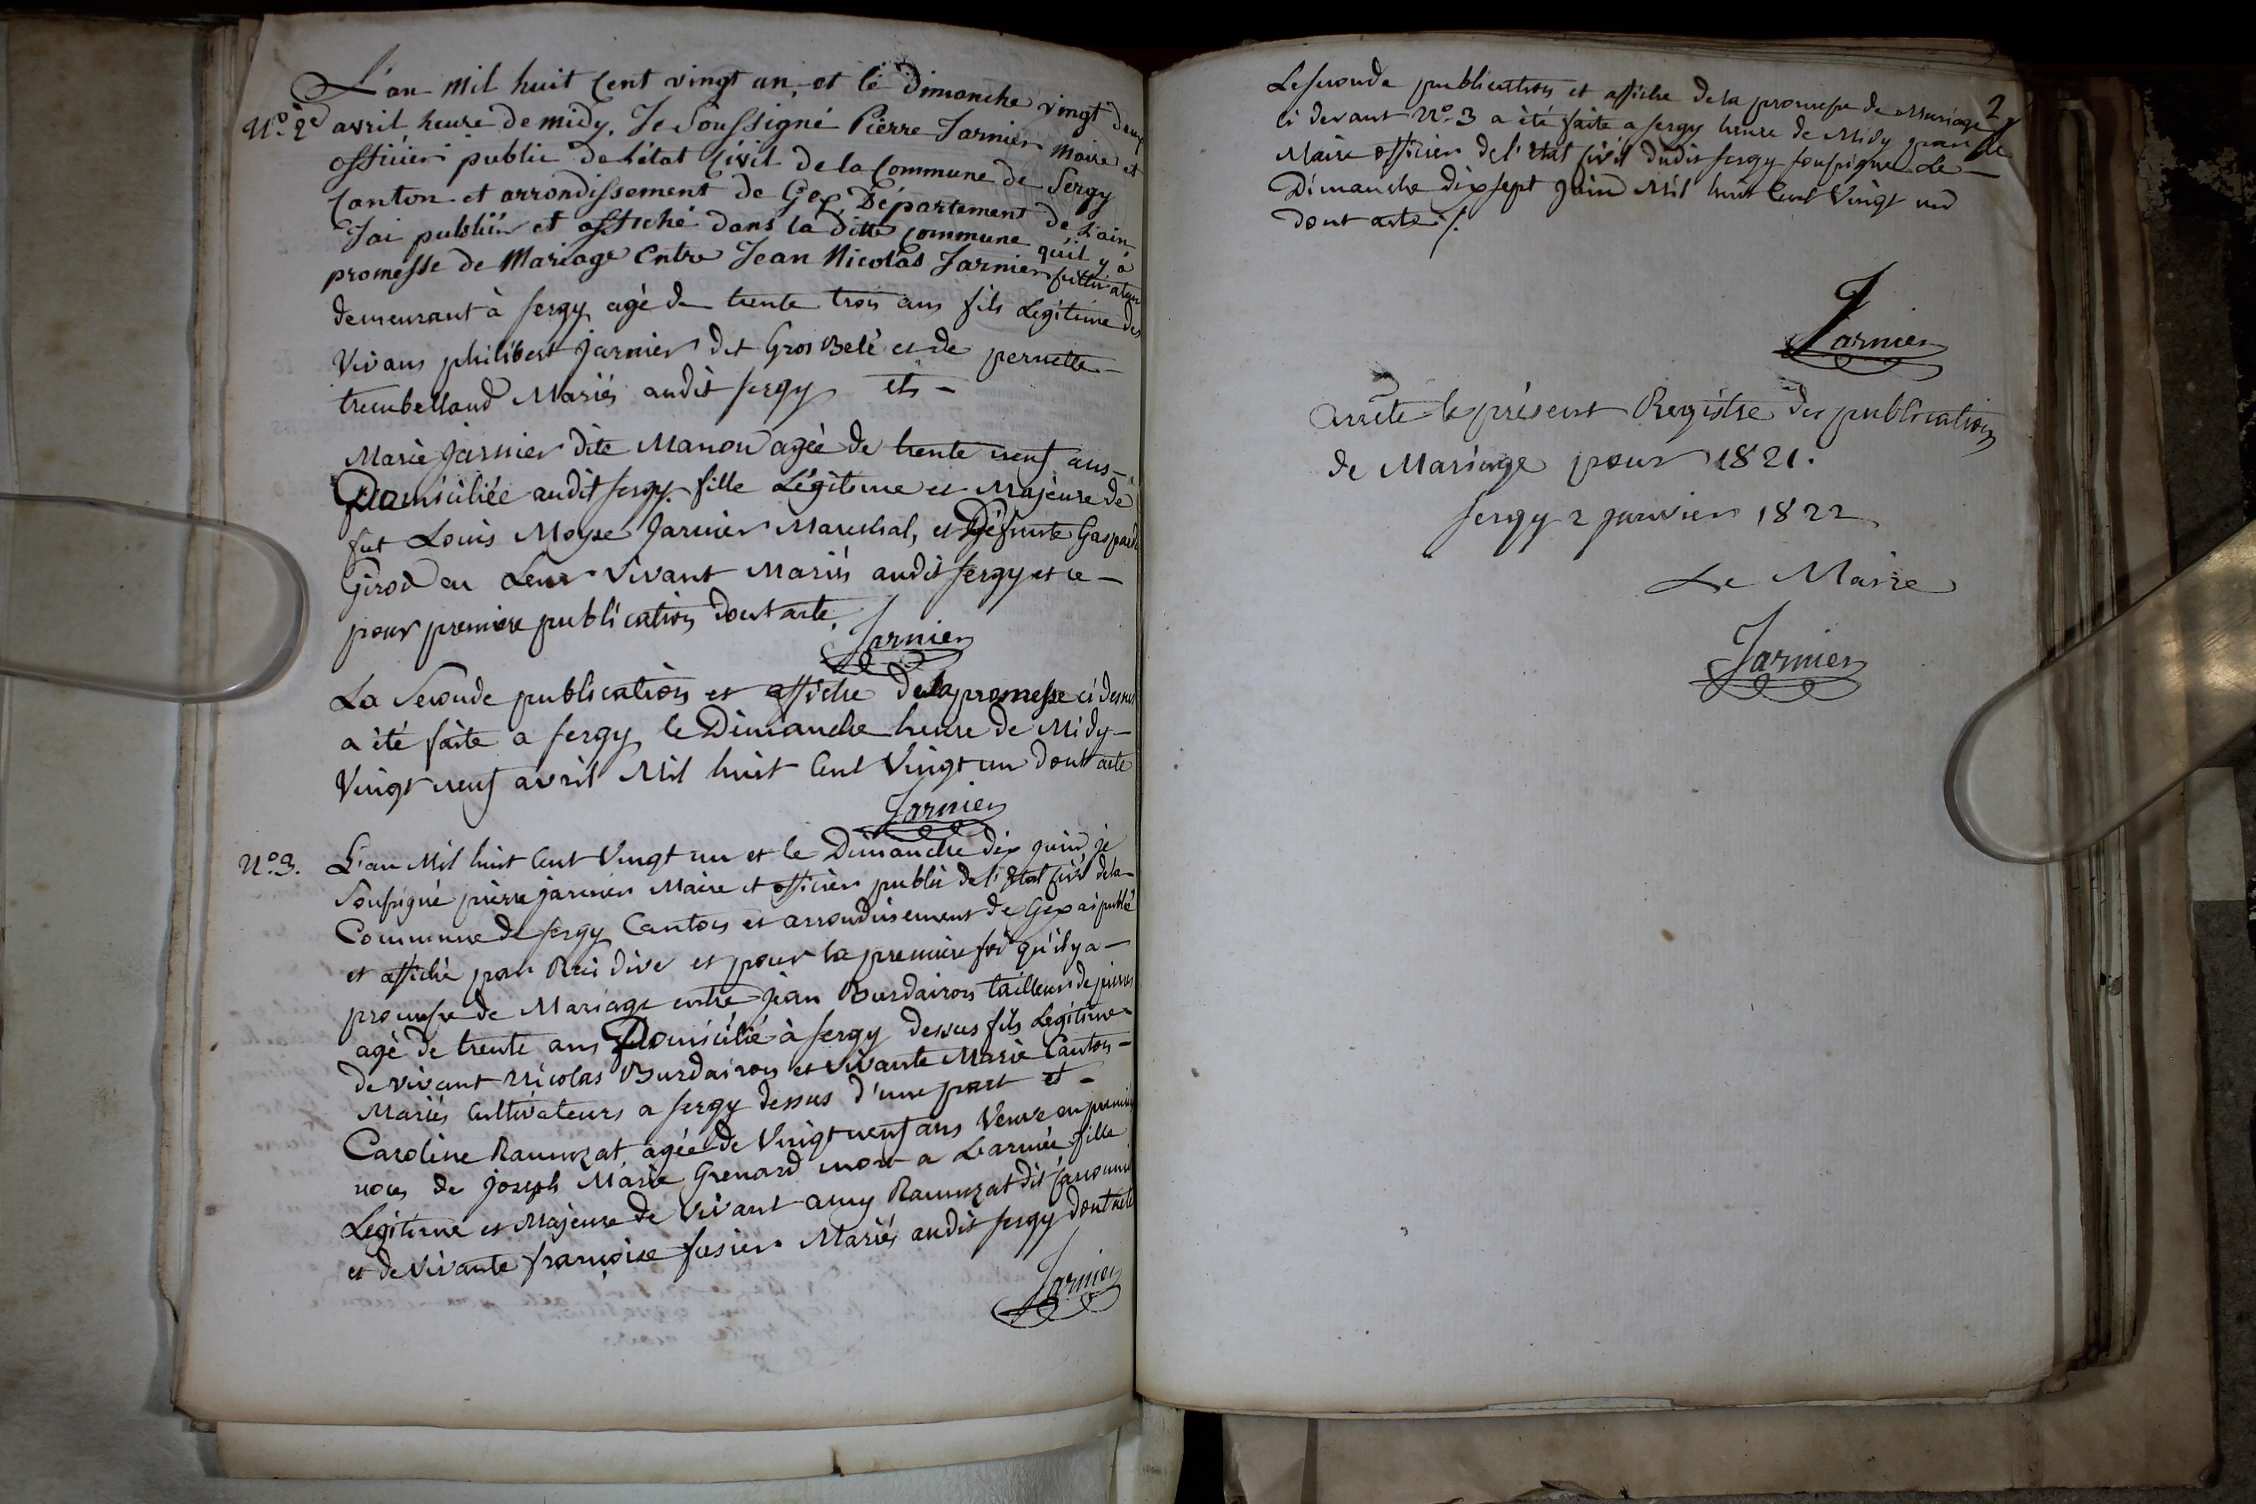 L'an Mil huit Cent vingt un, et le dimanche vingt deux
N°. 2e avril heure de midy, Je Soussigné Pierre Jarnier Maire et
officier public de l'état Civil de la Commune de Sergy
Canton et arrondissement de Gex, Département de L'ain
J'ai publiér et affiché dans la ditte commune qu'il y à
promesse de Mariage Entre Jean Nicolas Jarnier Cultivateur
demeurant à Sergy agé de trente trois ans fils Légitime des
Vivans philibert Jarnier dit Gros Belé et de pernette
trembelland Mariés audit Sergy et
Marie Jarnier dite Manon agée de trente neuf ans
Domiciliée audit Sergy fille Légitime et Majeure de
fut Louis Moÿse Jarnier Marechal, et Défunte Gasparde
Girod en Leur Vivant Mariés audit Sergy et ce
pour premiere publication dont acte
Jarnier
La Seconde publication et affiche dela promesse ci dessus
a été faite a Sergy le Dimanche heure de Midy
Vingt neuf avril Mil huit Cent Vingt un dont acte
Jarnier
N°. 3. L'an Mil huit Cent Vingt un et le Dimanche dix juin je
Soussigné pierre jarnier Maire et officier public de l'Etat Civil dela
Commune de Sergy Canton et arrondissement de Gex ai publié
et affiché pour et pour la premiere foi qu'il y a
promesse de Mariage entre jean Burdairon tailleur de pierres
agé de trente ans Domicilié à Sergy dessus fils Legitime
de vivant Nicolas Burdairon et vivante Marie Canton
Mariés Cultivateurs a Sergy dessus d'une part et
Caroline Ramuzat agée de Vingt neuf ans Veuve en premiere
noces de Joseph Marie Grenard mort a L'armée fille
Legitime et Majeure de Vivant amy Ramuzat dit
et de Vivante françoise fusier Mariés audit Sergy dont acte
Jarnier
2
La seconde publication et affiche dela promesse de Mariage
ci devant N°. 3 a été faite a Sergy heure de Midy par le
Maire officier de l'Etat Civil dudit Sergy soussigné Le
Dimanche dix sept Juin Mil huit Cent Vingt un
dont acte ./.
Jarnier
arrêté le présent Registre des publications
de Mariage pour 1821.
Sergy 2 janvier 1822
Le Maire
Jarnier